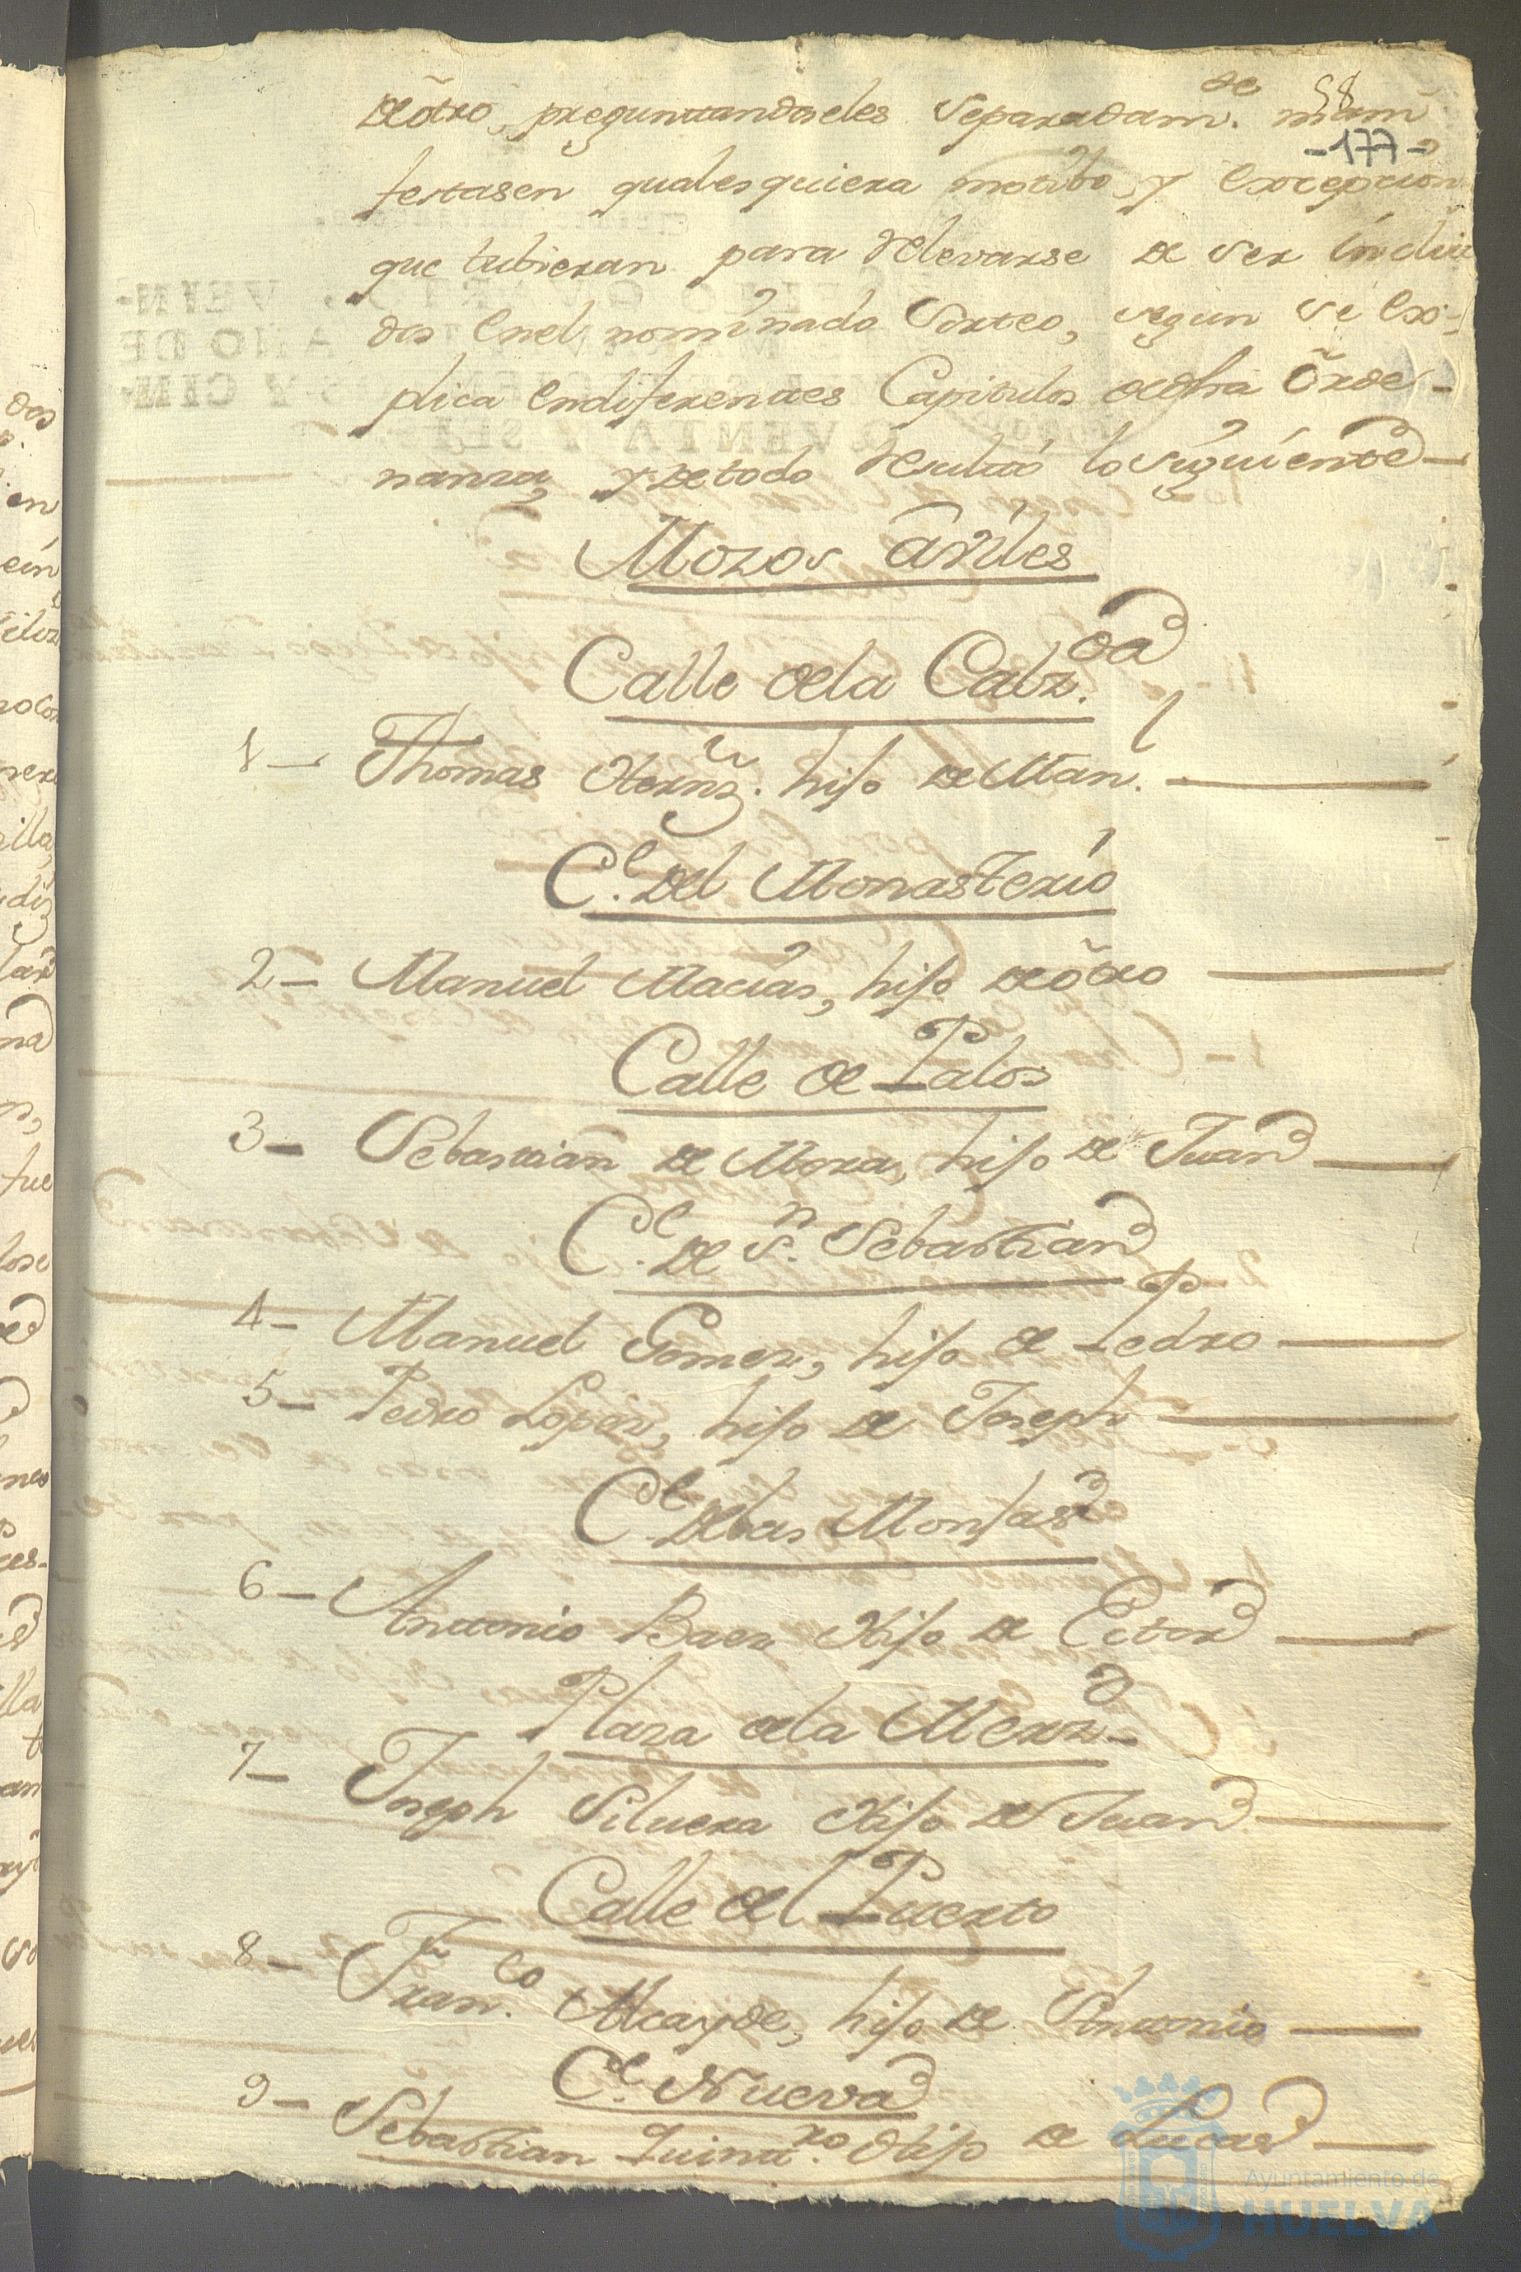 58
-177-
de ôtro, preguntandoseles Separadam.te mani
festasen qualesquiera motibo, y Excepcion
que tubieran para relevarse de ser inclui
dos Enel nominado Sorteo, segun se Ex-
plica Endiferentes Capitulos dedha Orde-
nanza, y de todo resultó lo siguiente
Mozos aviles
Calle dela Calz.da
1- Thomas Hernz. hijo de Man.l
C.e Del Monasterio
2- Manuel Macias, hijo de ôtro
Calle de Palos
3- Sebastian de Mora, hijo de Juan
C.e de S.n Sebastian
4- Manuel Gomez, hijo de Pedro
5- Pedro Lopez, hijo de Joseph
C.e Delas Monjas
6- Antonio Baez Hijo de Ector
Plaza dela Merz.d
7- Joseph Siluera Hijo de Juan
Calle del Puerto
8- Fran.co Alcayde, hijo de Antonio
C.e Nueva
9- Sebastian Quint.ro Hijo de Lucas
Ayuntamiento de
HUELVA